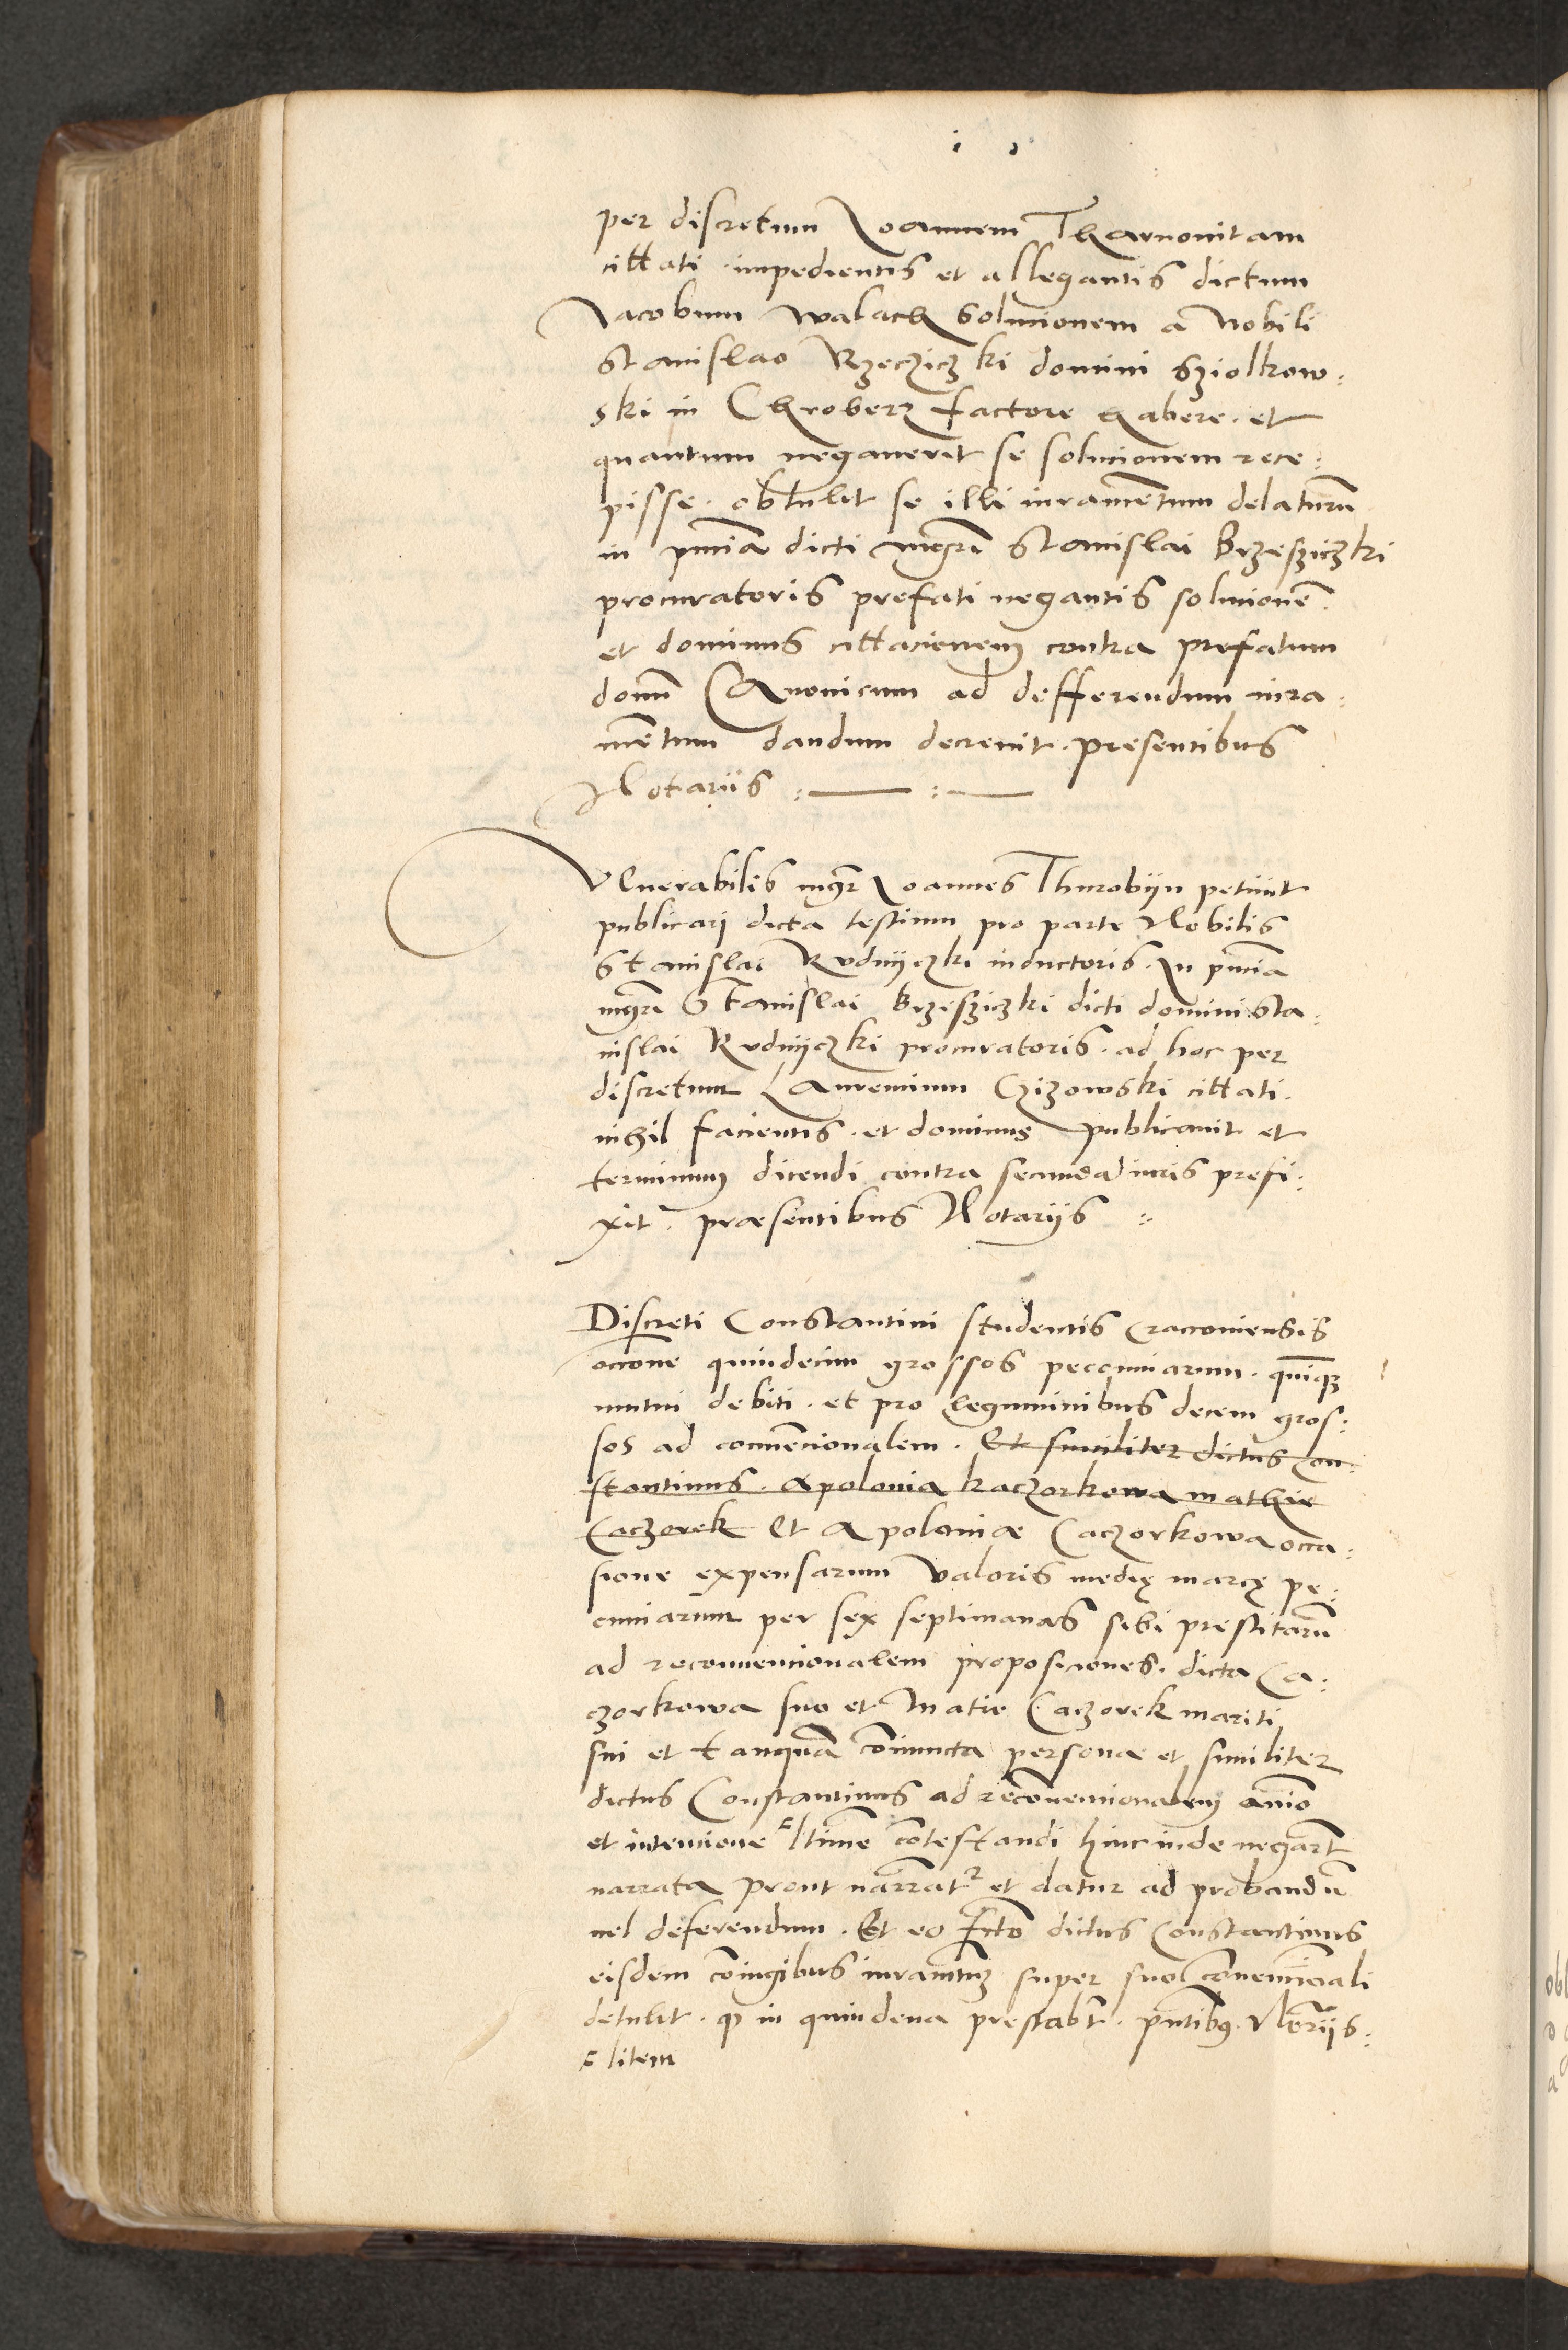 per discretum Joannem Tharnonitam
cittati impedientis et allegantis dictum
Jacobum Walach solucionem a Nobili
Stanislao Rzecziczki domini Sziolkow:
ski in Chroberz factore habere. et
quantum negaverit se solucionem rece:
pisse. obtulit se illi iuramentum delaturū
in pn̄cia dicti mgr̄i Stanislai Brzesziczki
procuratoris prefati negantis solucionē
et dominus cittacionem contra prefatum
domn̄ Canonicum ad defferendum iura:
mētum dandum decrevit. presentibus
Notariis :—:—
Venerabilis mgr̄ Joannes Thurobijn petiuit
publicari dicta testium pro parte Nobilis
Stanislai Rudnijczki inductoris. In pn̄cia
mgr̄i Stanislai Brzesziczki dicti domini Sta:
nislai Rudnijczki procuratoris. ad hoc per
discretum Laurencium Czizowski cittati.
nihil facientis. et dominus publicavit et
terminum dicendi contra secunda iuris prefi:
xit. praesentibus Notarijs :
Discreti Constantini studentis Cracoviensis
occone quindecim grossos pecuniarum.
mutui debiti. et pro leguminibus decem gros:
sos ad conuēcionalem. Et similiter dictus Con:
stantinus. Apolonia kaczorkowa mathie
Caczorek Et Apoloniae Caczorkowa occa:
sione expensarum valoris medię marcę pe:
cuniarum per sex septimanas sibi prestitarū
ad reconvencionalem proposiciones. dicta Ca:
czorkowa suo et Matie Caczorek mariti
sui et tanquā cōiuncta persona et similiter
dictus Constantinus ad recōvencionalem animo
et intencione ltime cōtestandi hincinde negart
narrata prout narrat^r et datur ad probandū
vel deferendum. Et eo fcto dictus Constantinus
eisdem cōiugibus iuramtum super suo convēcionali
detulit. q in quindena prestabt. pn̄tibus. Notriis.
litem